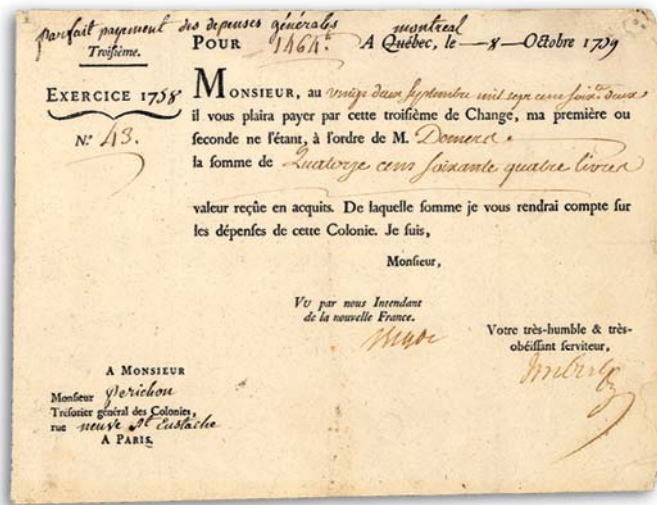 parfait payement des depenses générales
Troisiéme.
POUR 1464.tt A Québec, le — 8 — Octobre 1759
montreal
EXERCICE 1758
N.° 43.
MONSIEUR, au vingt deux septembre mil sept cens soix.te deux
il vous plaira payer par cette troisiéme de Change, ma premiére ou
seconde ne l'étant, à l'ordre de M.
la somme de Quatorze cens soixante quatre livres
valeur reçûe en acquits. De laquelle somme je vous rendrai compte sur
les dépenses de cette Colonie. Je suis,
Monsieur,
VU par nous Intendant
de la nouvelle France.
Bigot
Votre très-humble & très-
obéissant serviteur,
Imbert
A MONSIEUR
Monsieur Perichon
Trésorier général des Colonies,
rue neuve St Eustache
A PARIS.